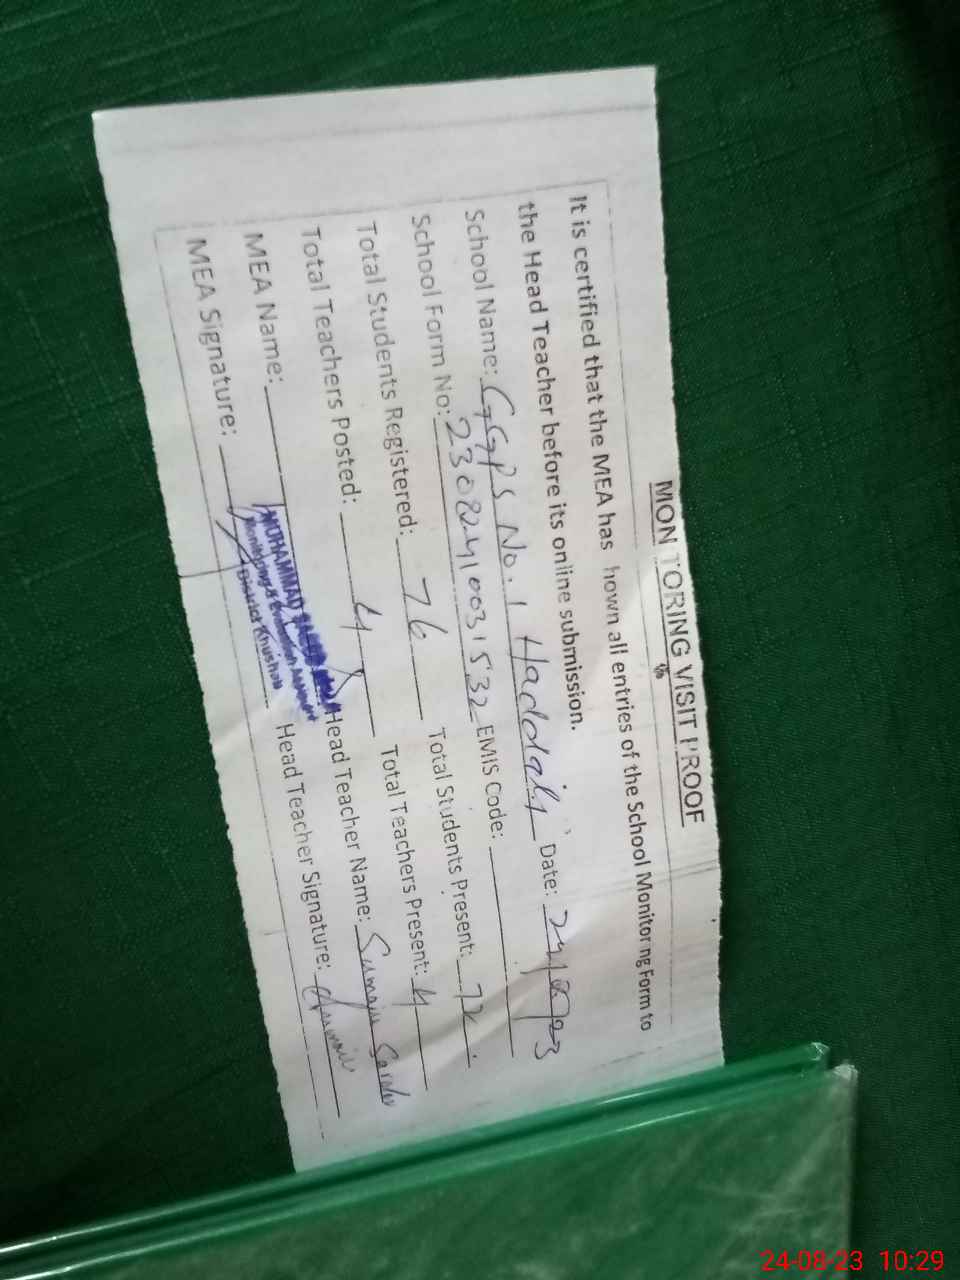 MONITORING VISIT PROOF
It is certified that the MEA has hown all entries of the School Monitoring Form to
the Head Teacher before its online submission.
School Name: GGPS No. 1 Haddali Date: 24/8/23
School Form No: 23082410031532 EMIS Code:
Total Students Registered: 76 Total Students Present: 72
Total Teachers Posted: 4 Total Teachers Present: 4
MEA Name: MUHAMMAD Head Teacher Name: Sumaya
Monitoring & Evaluation Assistant
District Khushab
MEA Signature: Head Teacher Signature:
24-08-23 10:29